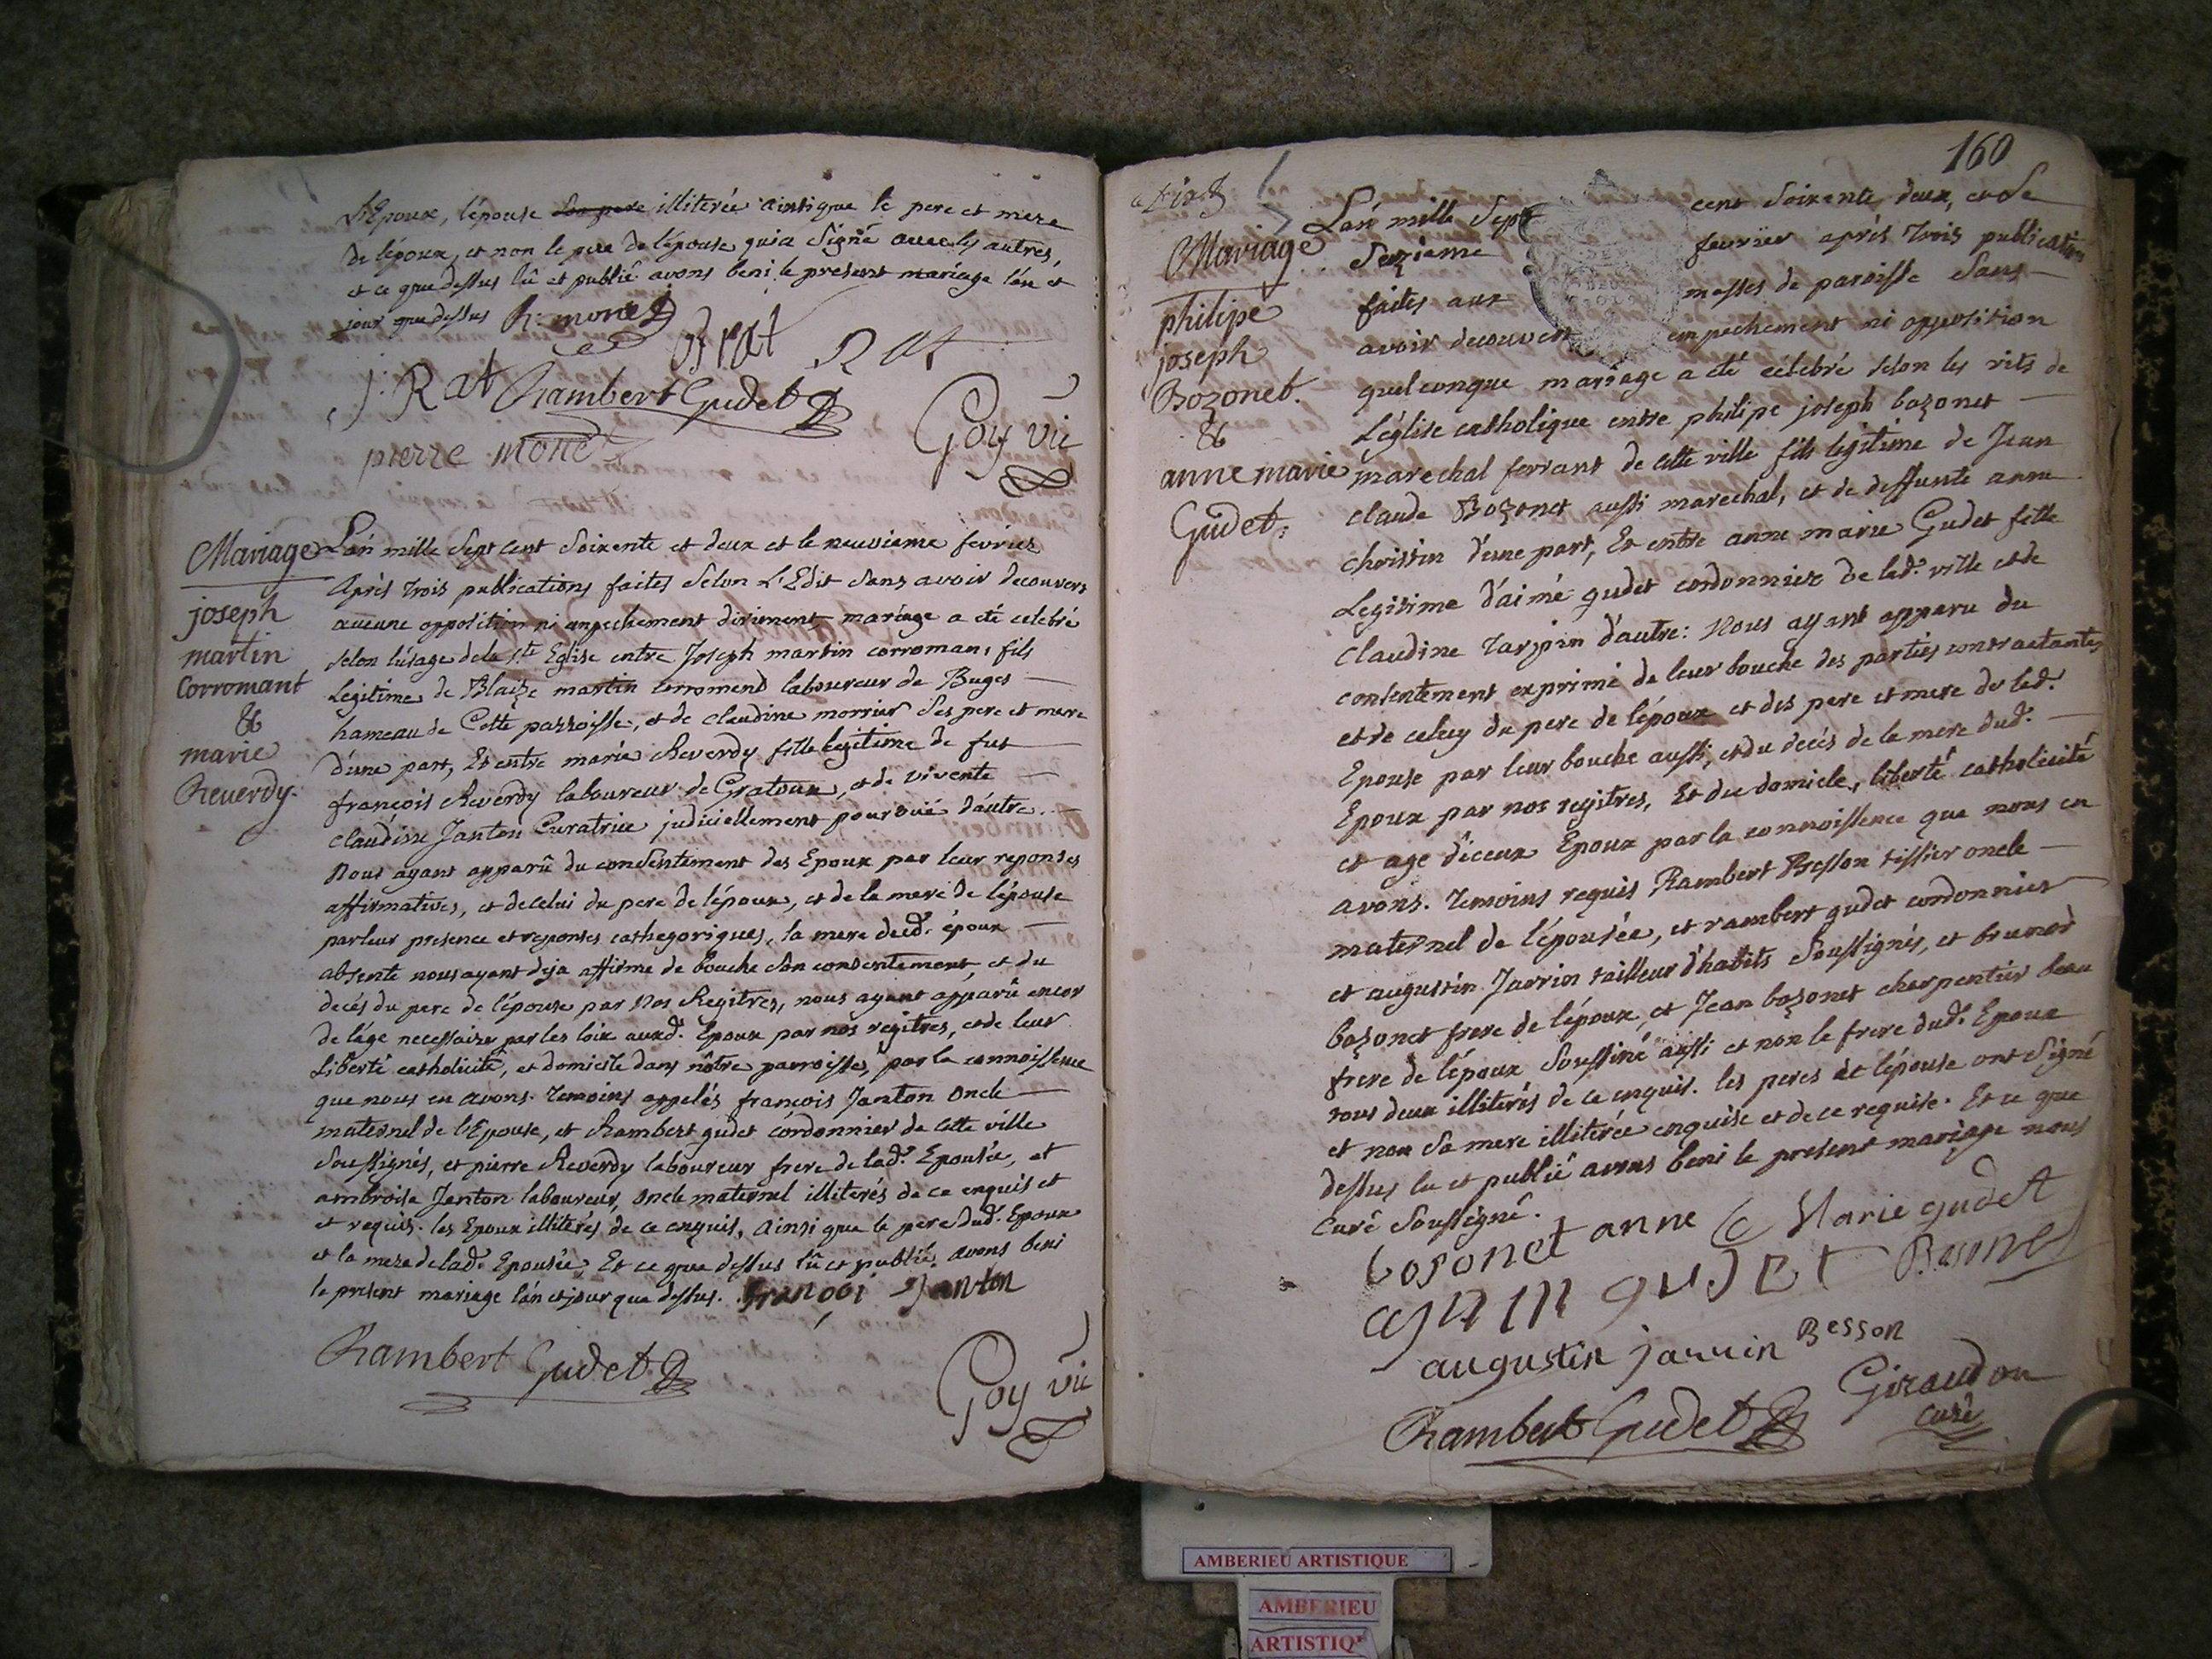 L'Epoux, l'épouse son pere illiterée ainsi que le pere et mere
de l'époux, et non le pere de l'épouse qui a Signé avec les autres,
et ce que dessus lû et publié avons beni le present mariage l'an et
jour que dessus R: monet
Brat Rat
j: Rat Rambert Gudet
pierre monet Goy vic
Mariage
joseph
martin
Corromant
&
marie
Reverdy.
L'an mille Sept cent Soixente et deux et le neuvieme fevrier
Après trois publications faites Selon L'Edit Sans avoir decouvert
aucune opposition ni empechement dirimens, mariage a été celebré
selon l'usage de la Ste Eglise entre Joseph martin corroman, fils
Legitime de Blaize martin corromend laboureur de Buges
hameau de Cette parroisse, et de claudine morrier Ses pere et mere
d'une part, Et entre marie Reverdy fille legitime de fut
françois Reverdy laboureur de Gratoux, et de vivente
claudine Janton Curatrice judiciellement pourvüe d'autre.
Nous ayant apparû du consentement des Epoux par leur reponses
affirmatives, et de celui du pere de l'époux, et de la mere de l'épouse
par leur presence et reponses cathegoriques, la mere dud. époux
absente nous ayant deja affirmé de bouche son consentement, et du
decés du pere de l'épouse par Nos Regitres, nous ayant apparû encor
de l'age necessaire par les loix auxd. Epoux par nos regitres, et de leur
Liberté catholicité, et domicile dans nôtre parroisse, par la connoissence
que nous en avons. Temoins appelés françois Janton oncle
maternel de l'Epouse, et Rambert gudet cordonnier de cette ville
Soussignés, et pierre Reverdy laboureur frere de lad. Epousée, et
ambroise Janton laboureur, oncle maternel illiterés de ce enquis et
et requis. les Epoux illiterés de ce enquis, ainsi que le pere dud. Epoux
et la mere de lad. Epousée. Et ce que dessus lû et publié avons beni
le present mariage l'an et jour que dessus. françoi Janton
Rambert Gudet Goy vic
160
Mariage
philipe
joseph
Bozonet.
&
anne marie
Gudet:
L'an mille Sept cent Soixente deux, et Le
Sezieme fevrier après trois publications
faites aux messes de paroisse Sans
avoir decouvert empechement ni opposition
quelconque mariage a été célébré selon les rits de
L'église catholique entre philipe joseph bozonet
marechal ferrant de cette ville fils legitime de Jean
claude Bozonet aussi marechal, et de deffunte anne
christin d'une part, Et entre anne marie Gudet fille
Legitime d'aimé gudet cordonnier de lad. ville et de
claudine Tarpin d'autre: Nous ayant apparu du
consentement exprimé de leur bouche des parties contractantes
et de celuy du pere de l'époux et des pere et mere de lad.
Epouse par leur bouche aussi, et du decés de la mere dud.
Epoux par nos regitres, Et du domicile, liberté catholicité
et age d'iceux Epoux par la connoissence que nous en
avons. Temoins requis Rambert Besson tissier oncle
maternel de l'épousée, et rambert gudet cordonnier
et augustin Jarrin tailleur d'habits Soussignés, et brunod
bozonet frere de l'époux, et Jean bozonet charpentier beau
frere de l'époux Soussiné aussi et non le frere dud. Epoux
tous deux illiterés de ce enquis. les peres et l'épouse ont Signé
et non Sa mere illiterée enquise et de ce requise. Et ce que
dessus lu et publié avons beni le present mariage nous
Curé Soussigné.
bosonet anne Marie gudet
gudet
augustin jarrin Besson
Rambert Gudet Giraudon
Curé
AMBERIEU ARTISTIQUE
AMBERIEU
ARTISTIQ